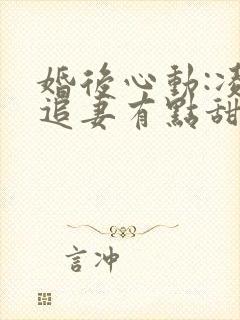 婚後心動:凌
追妻有點甜
言冲